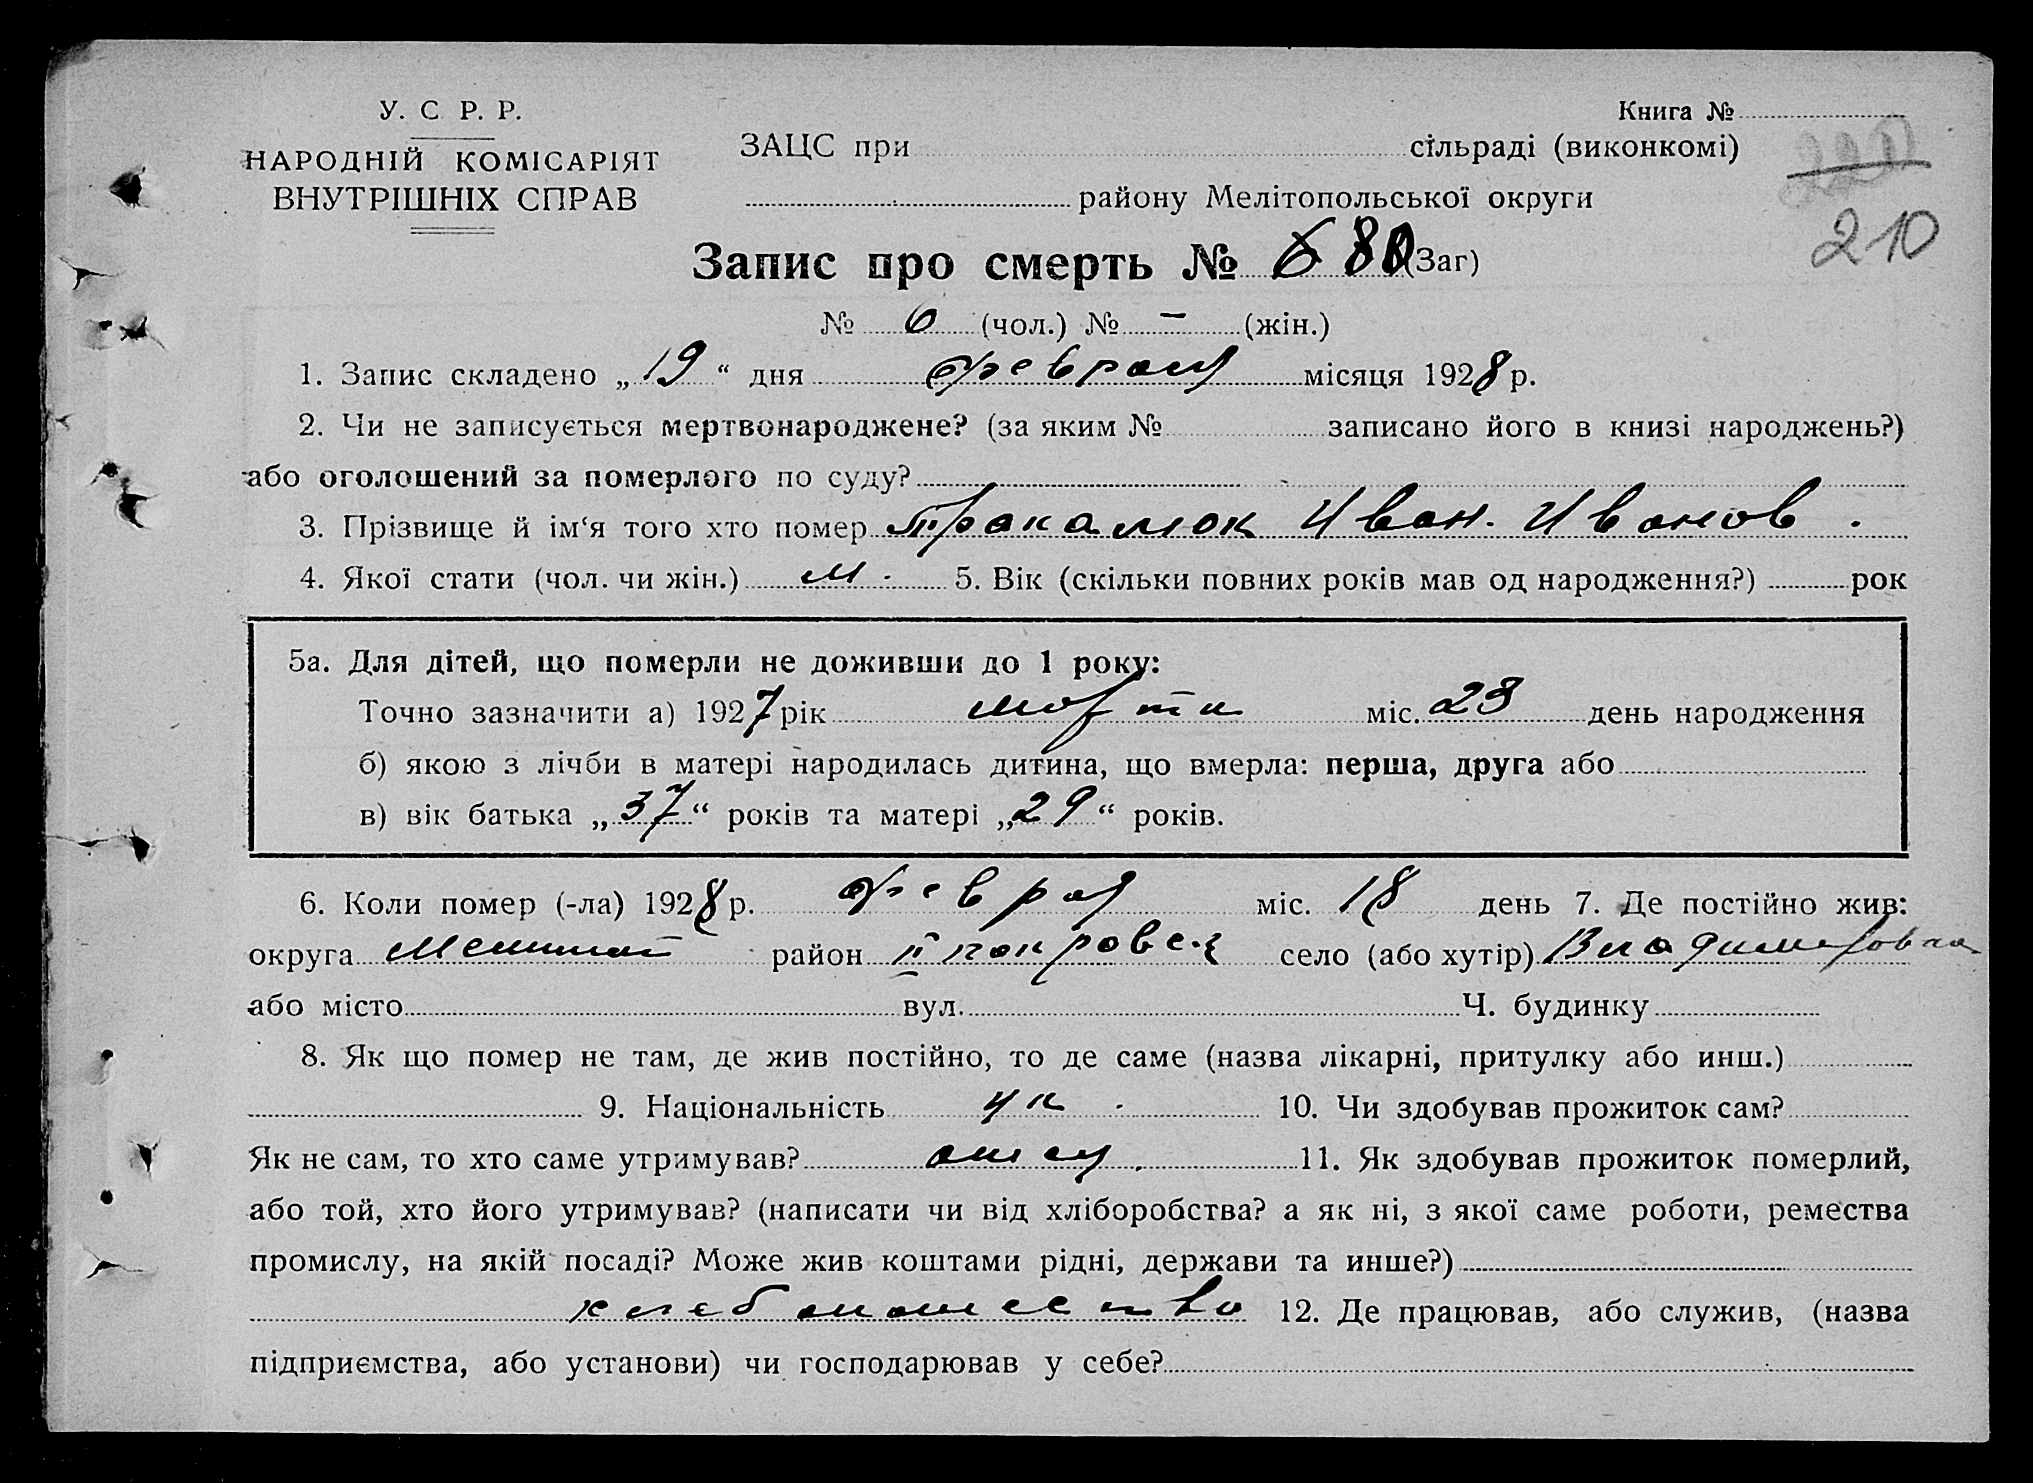 У. С. Р. Р.
НАРОДНІЙ КОМІСАРІЯТ
ВНУТРІШНІХ СПРАВ
Книга №
ЗАЦС при сільраді (виконкомі)
району Мелітопольської округи
210
Запис про смерть № 6 80 (Заг)
№ 6 (чол.) № – (жін.)
1. Запис складено „19“ дня февраля місяця 1928 р.
2. Чи не записується мертвонароджене? (за яким № записано його в книзі народжень?)
або оголошений за померлого по суду?
3. Прізвище й ім‘я того хто помер Иван. Иванов.
4. Якої стати (чол. чи жін.) м. 5. Вік (скільки повних років мав од народження?) рок
5а. Для дітей, що померли не доживши до 1 року:
Точно зазначити а) 1927 рік марта міс. 23 день народження
б) якою з лічби в матері народилась дитина, що вмерла: перша, друга або
в) вік батька „37“ років та матері „29“ років.
6. Коли помер (-ла) 1928 р. февра міс. 18 день 7. Де постійно жив:
округа Мелитоп район село (або хутір) Владимировка
або місто вул. Ч. будинку
8. Як що помер не там, де жив постійно, то де саме (назва лікарні, притулку або инш.)
9. Національність ук. 10. Чи здобував прожиток сам?
Як не сам, то хто саме утримував? отец. 11. Як здобував прожиток померлий,
або той, хто його утримував? (написати чи від хліборобства? а як ні, з якої саме роботи, ремества
промислу, на якій посаді? Може жив коштами рідні, держави та инше?)
хлебопашество 12. Де працював, або служив, (назва
підприємства, або установи) чи господарював у себе?